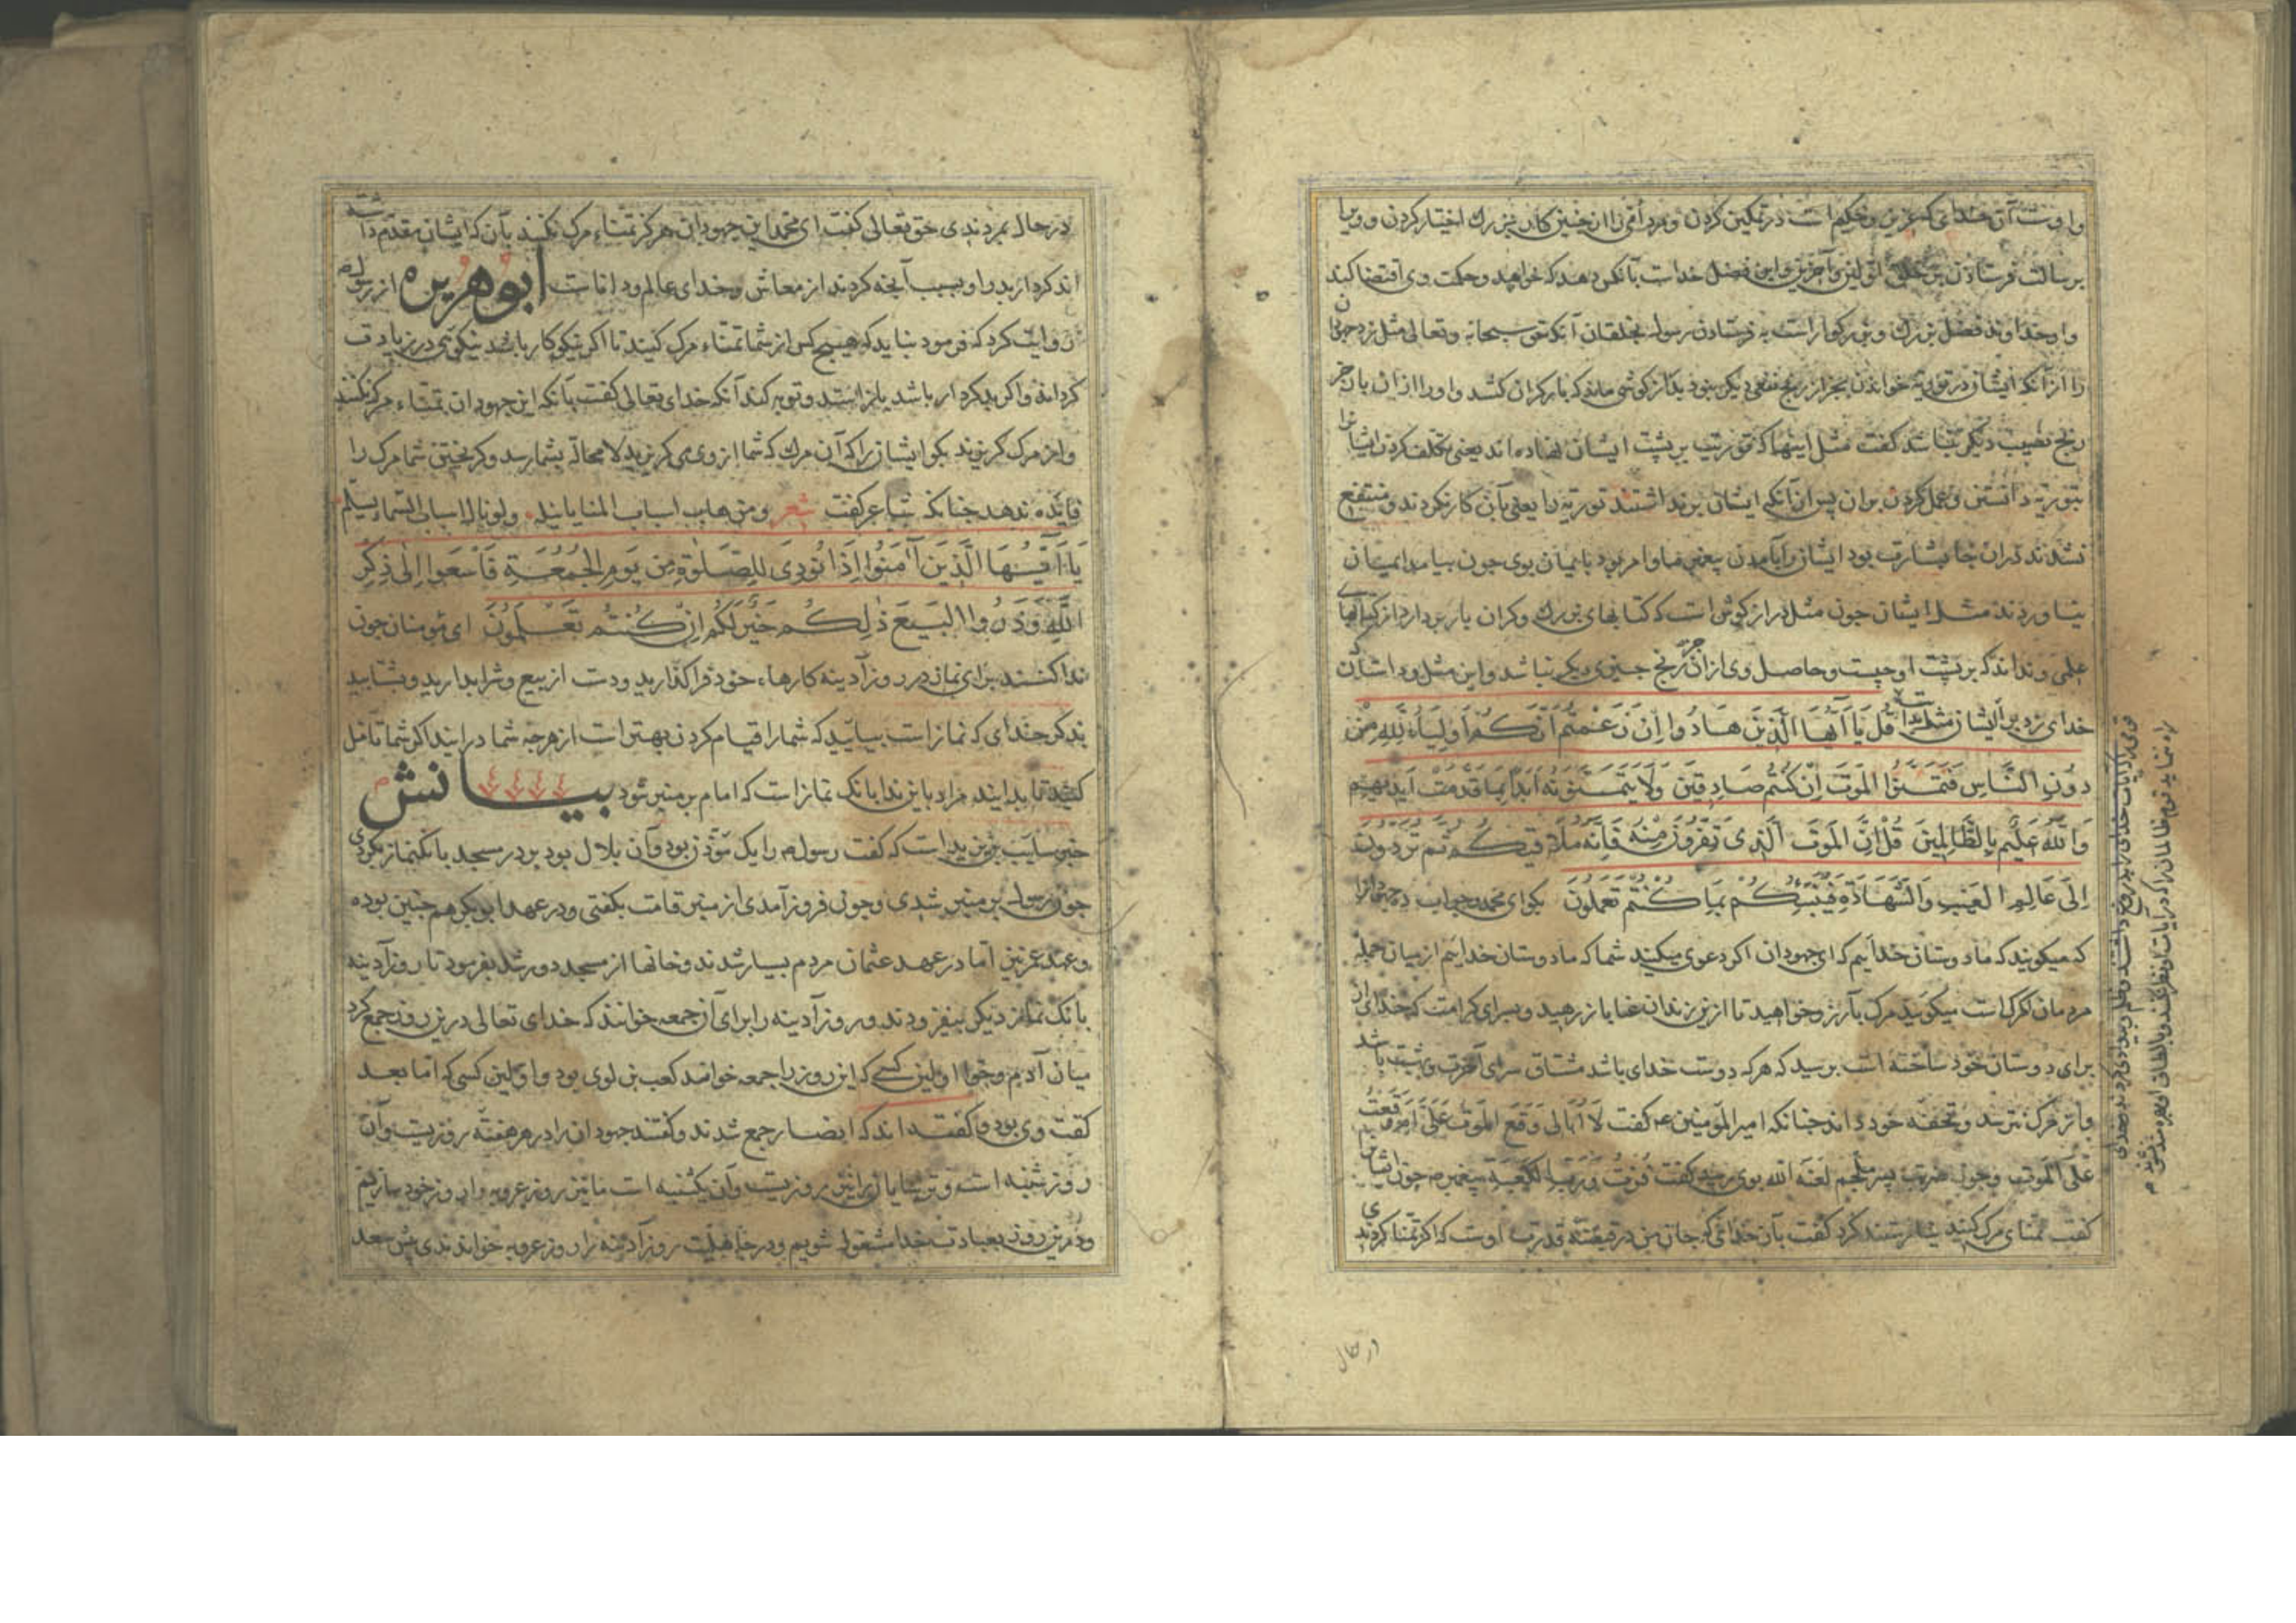 واوست آن خدای که عزیز و حکیم است در تمکین کردن و مرد امّی را از چنین کار بزرك اختیار کردن و ویرا
برسالت فرستادن بر خلق اولین و آخرین و این فضل خداست بآنکس دهد که خواهد و حکمت وی اقتضا کند
و او خداوند فضل بزرك و بزرکوار است به فرستادن رسول بخلقان آنکه حق سبحانه و تعالی مثل زد جهودان
را از آنکه ایشان در توریة خواندن بجز از رنج نفعی دیکر نبود بدراز کوشی ماند که بار کران کشد و او را از ان بار جز
رنج نصیب دیکر نباشد کفت مثل اینها که توریت بر پشت ایشان نهاده اند یعنی تکلیف کردن ایشانرا
بتوریة دانستن و عمل کردن بران پس از آنکه ایشان بر نداشتند توریة را یعنی بآن کار نکردند و منتفع
نشدند دران جا بشارت بود ایشانرا بآمدن پیغمبر ما و امر بود بایمان بوی چون بیامد ایمان
نیاوردند مثل ایشان چون مثل دراز کوش است که کتابهای بزرك و کران بار بردارد از کتابهای
علمی و نداند که بر پشت او چیست و حاصل وی از ان جز رنج چیزی دیکر نباشد و این مثل وداستان
خدای زد بر ایشان مثل بدا قُلْ یَا اَیُّهَا الَّذِینَ هَادُوا اِنْ زَعَمْتُمْ اَنَّکُمْ اَوْلِیَاءُ لِلّٰهِ مِنْ
دُونِ النَّاسِ فَتَمَنَّوُا الْمَوْتَ اِنْ کُنْتُمْ صَادِقِینَ وَلَا یَتَمَنَّوْنَهُ اَبَداً بِمَا قَدَّمَتْ اَیْدِیهِمْ
وَاللّٰهُ عَلِیمٌ بِالظَّالِمِینَ قُلْ اِنَّ الْمَوْتَ الَّذِی تَفِرُّونَ مِنْهُ فَاِنَّهُ مُلَاقِیکُمْ ثُمَّ تُرَدُّونَ
اِلَی عَالِمِ الْغَیْبِ وَالشَّهَادَةِ فَیُنَبِّئُکُمْ بِمَا کُنْتُمْ تَعْمَلُونَ بکو ای محمد و جواب ده جهودانرا
که میکویند که ما دوستان خداییم که ای جهودان اکر دعوی میکنید شما که ما دوستان خداییم از میان جمله
مردمان اکر راست میکویید مرك بآرزو خواهید تا ازین زندان عنا باز رهید و بسرای کرامت که خدای از
برای دوستان خود ساخته است برسید که هرکه دوست خدای باشد مشتاق سرای آخرت و بهشت باشد
و از مرك نترسد و تحفه خود داند چنانکه امیر المؤمنین ع کفت لَا اُبَالِی وَقَعَ الْمَوْتُ عَلَیَّ اَمْ وَقَعْتُ
عَلَی الْمَوْتِ و چون ضربت پسر ملجم لعنه الله بوی رسید کفت فُزْتُ وَرَبِّ الْکَعْبَةِ پیغمبر ص چون ایشانرا
کفت تمنّای مرك کنید نیارستند کرد کفت بآن خدائی که جان من در قبضه قدرت اوست که اکر تمنا کردندی
در حال
درحال بمردندی حق تعالی کفت ای محمد این جهودان هرکز تمنّاء مرك نکنند بآن که ایشان مقدّم داشته
اند کردار بد را و بسبب آنچه کردند از معاش و خدای عالم و داناست ابوهریره از رسول ص
روایت کرد که فرمود نباید که هیچ کس از شما تمنّاء مرك کنید تا اکر نیکوکار باشد نیکویی در زیادت
کرداند و اکر بد کردار باشد باز ایستد و توبه کند آنکه خدای تعالی کفت بآنکه این جهودان تمنّاء مرك نکنند
و از مرك کریزند بکو ایشانرا که آن مرك که شما از وی می کریزید لا محاله بشما رسد و کریختن شما مرك را
فایده ندهد چنانکه شاعر کفت شعر ومن هاب اسباب المنایا ینله ولو نال اسباب السماء بسلّم
یَا اَیُّهَا الَّذِینَ آمَنُوا اِذَا نُودِیَ لِلصَّلٰوةِ مِنْ یَوْمِ الْجُمُعَةِ فَاسْعَوْا اِلٰی ذِکْرِ
اللّٰهِ وَذَرُوا الْبَیْعَ ذٰلِکُمْ خَیْرٌ لَکُمْ اِنْ کُنْتُمْ تَعْلَمُونَ ای مؤمنان چون
ندا کنند برای نماز در روز آدینه کارهاء خود فرا کذارید و دست از بیع و شرا بدارید و بشتابید
بذکر خدای که نماز است بیایید که شما را قیام کردن بهتر است از هرچه شما در ایند اکر شما تامّل
کنید تا بدانید مراد باین ندا بانک نماز است که امام بر منبر شود بیانش
خبر سایب بن یزید است که کفت رسول ص را یک مؤذن بود و آن بلال بود بر در مسجد بانک نماز بکردی
چون رسول بر منبر شدی و چون فروز آمدی از منبر قامت بکفتی و در عهد ابوبکر هم چنین بوده
و عهد عمر نیز امّا در عهد عثمان مردم بسیار شدند و خانها از مسجد دور شد بفرمود تا روز آدینه
بانک نماز دیکر بیفزودند و روز آدینه را برای آن جمعه خوانند که خدای تعالی درین روز جمع کرد
میان آدم و حوا اولین کسی که این روز را جمعه خواند کعب بن لوی بود و اوّلین کسی که اما بعد
کفت وی بود و کفته اند که انصار جمع شدند و کفتند جهودان را در هر هفته روزیست و آن
روز شنبه است و ترسایان را نیز روزیست و آن یکشنبه است ما نیز روز عروبه را روز خود سازیم
و درین روز بعبادت خدا مشغول شویم و در جاهلیت روز آدینه را روز عروبه خواندندی پس سعد